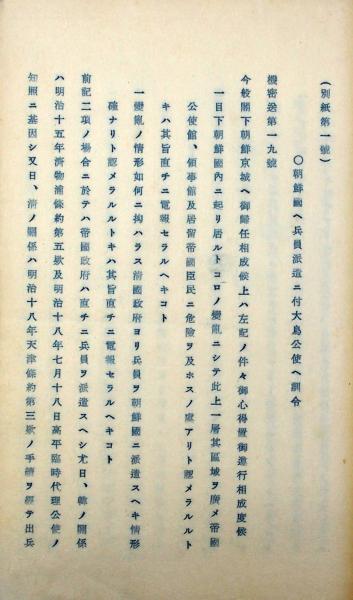 (別紙第一號)
〇朝鮮國ヘ兵員派遣ニ付大鳥公使ヘ訓令
機密送第一九號
今般閣下朝鮮京城ヘ御歸任相成候上ハ左記ノ件々御心得置御遵行相成度候
一目下朝鮮國內ニ起リ居ルトコロノ變亂ニシテ此上一層其區域ヲ廣メ帝國
公使館、領事館及居留帝國臣民ニ危險ヲ及ホスノ虞アリト認メラルルト
キハ其旨直チニ電報セラルヘキコト
一變亂ノ情形如何ニ拘ハラス淸國政府ヨリ兵員ヲ朝鮮國ニ派遣スヘキ情形
確ナリト認メラルルトキハ其旨直チニ電報セラルヘキコト
前記二項ノ場合ニ於テハ帝國政府ハ直チニ兵員ヲ派遣スヘシ尤日、韓ノ關係
ハ明治十五年濟物浦條約第五欵及明治十八年七月十八日高平臨時代理公使ノ
知照ニ基因シ又日、淸ノ關係ハ明治十八年天津條約第三欵ノ手續ヲ經テ出兵